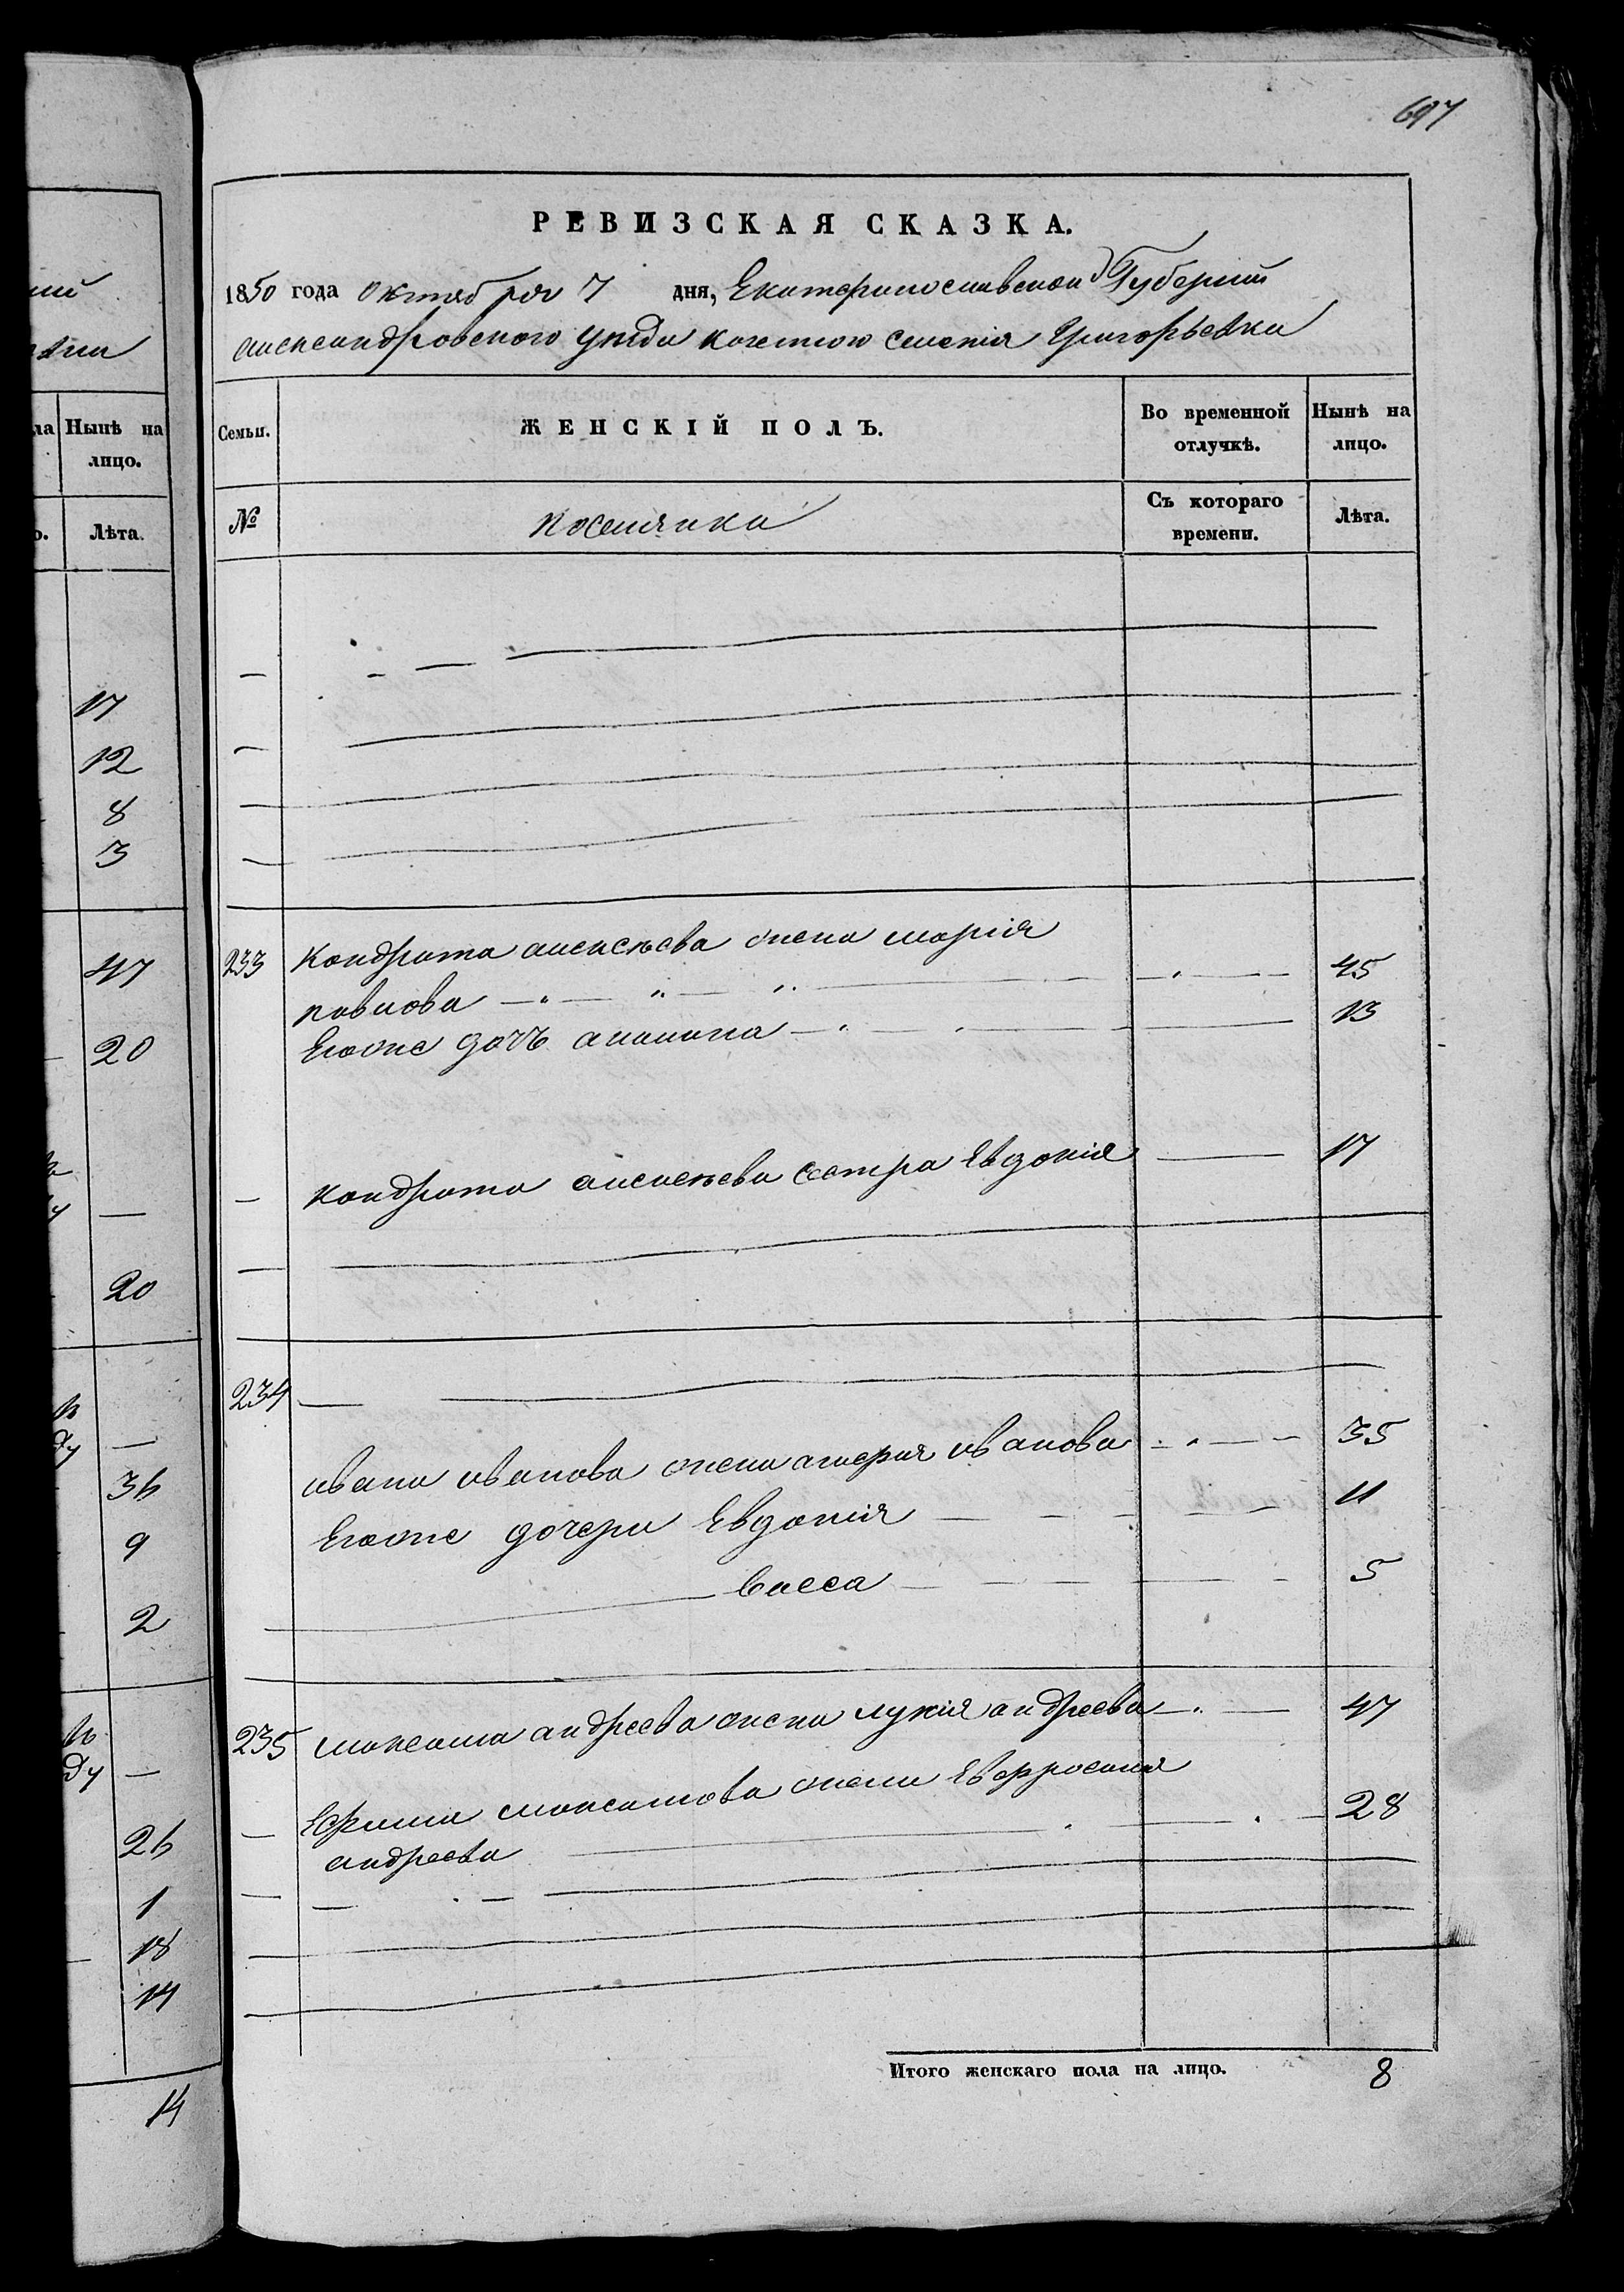 697
РЕВИЗСКАЯ СКАЗКА.
1850 года октября 7 дня, Екатеринославской Губерніи
александровского уезда казенного селенія Григорьевки
Семьи.
ЖЕНСКІЙ ПОЛЪ.
Во временной отлучкѣ.
Нынѣ на лицо.
№
поселянка
Съ котораго времени.
Лѣта.
233 Кондрата алексѣева жена марія
павлова 45
Егоже дочъ 13
кондрата алексѣева сестра Евдокія 17
234
ивана иванова жена иванова 35
Егоже дочери Евдокія 11
Васса 5
235 максима андреева жена лукія андреева 47
Ефима максимова жена Евфросинія
андреева 28
Итого женскаго пола на лицо. 8
Нынѣ на
лицо.
Лѣта.
17
12
8
3
47
20
20
36
9
2
26
1
18
14
14